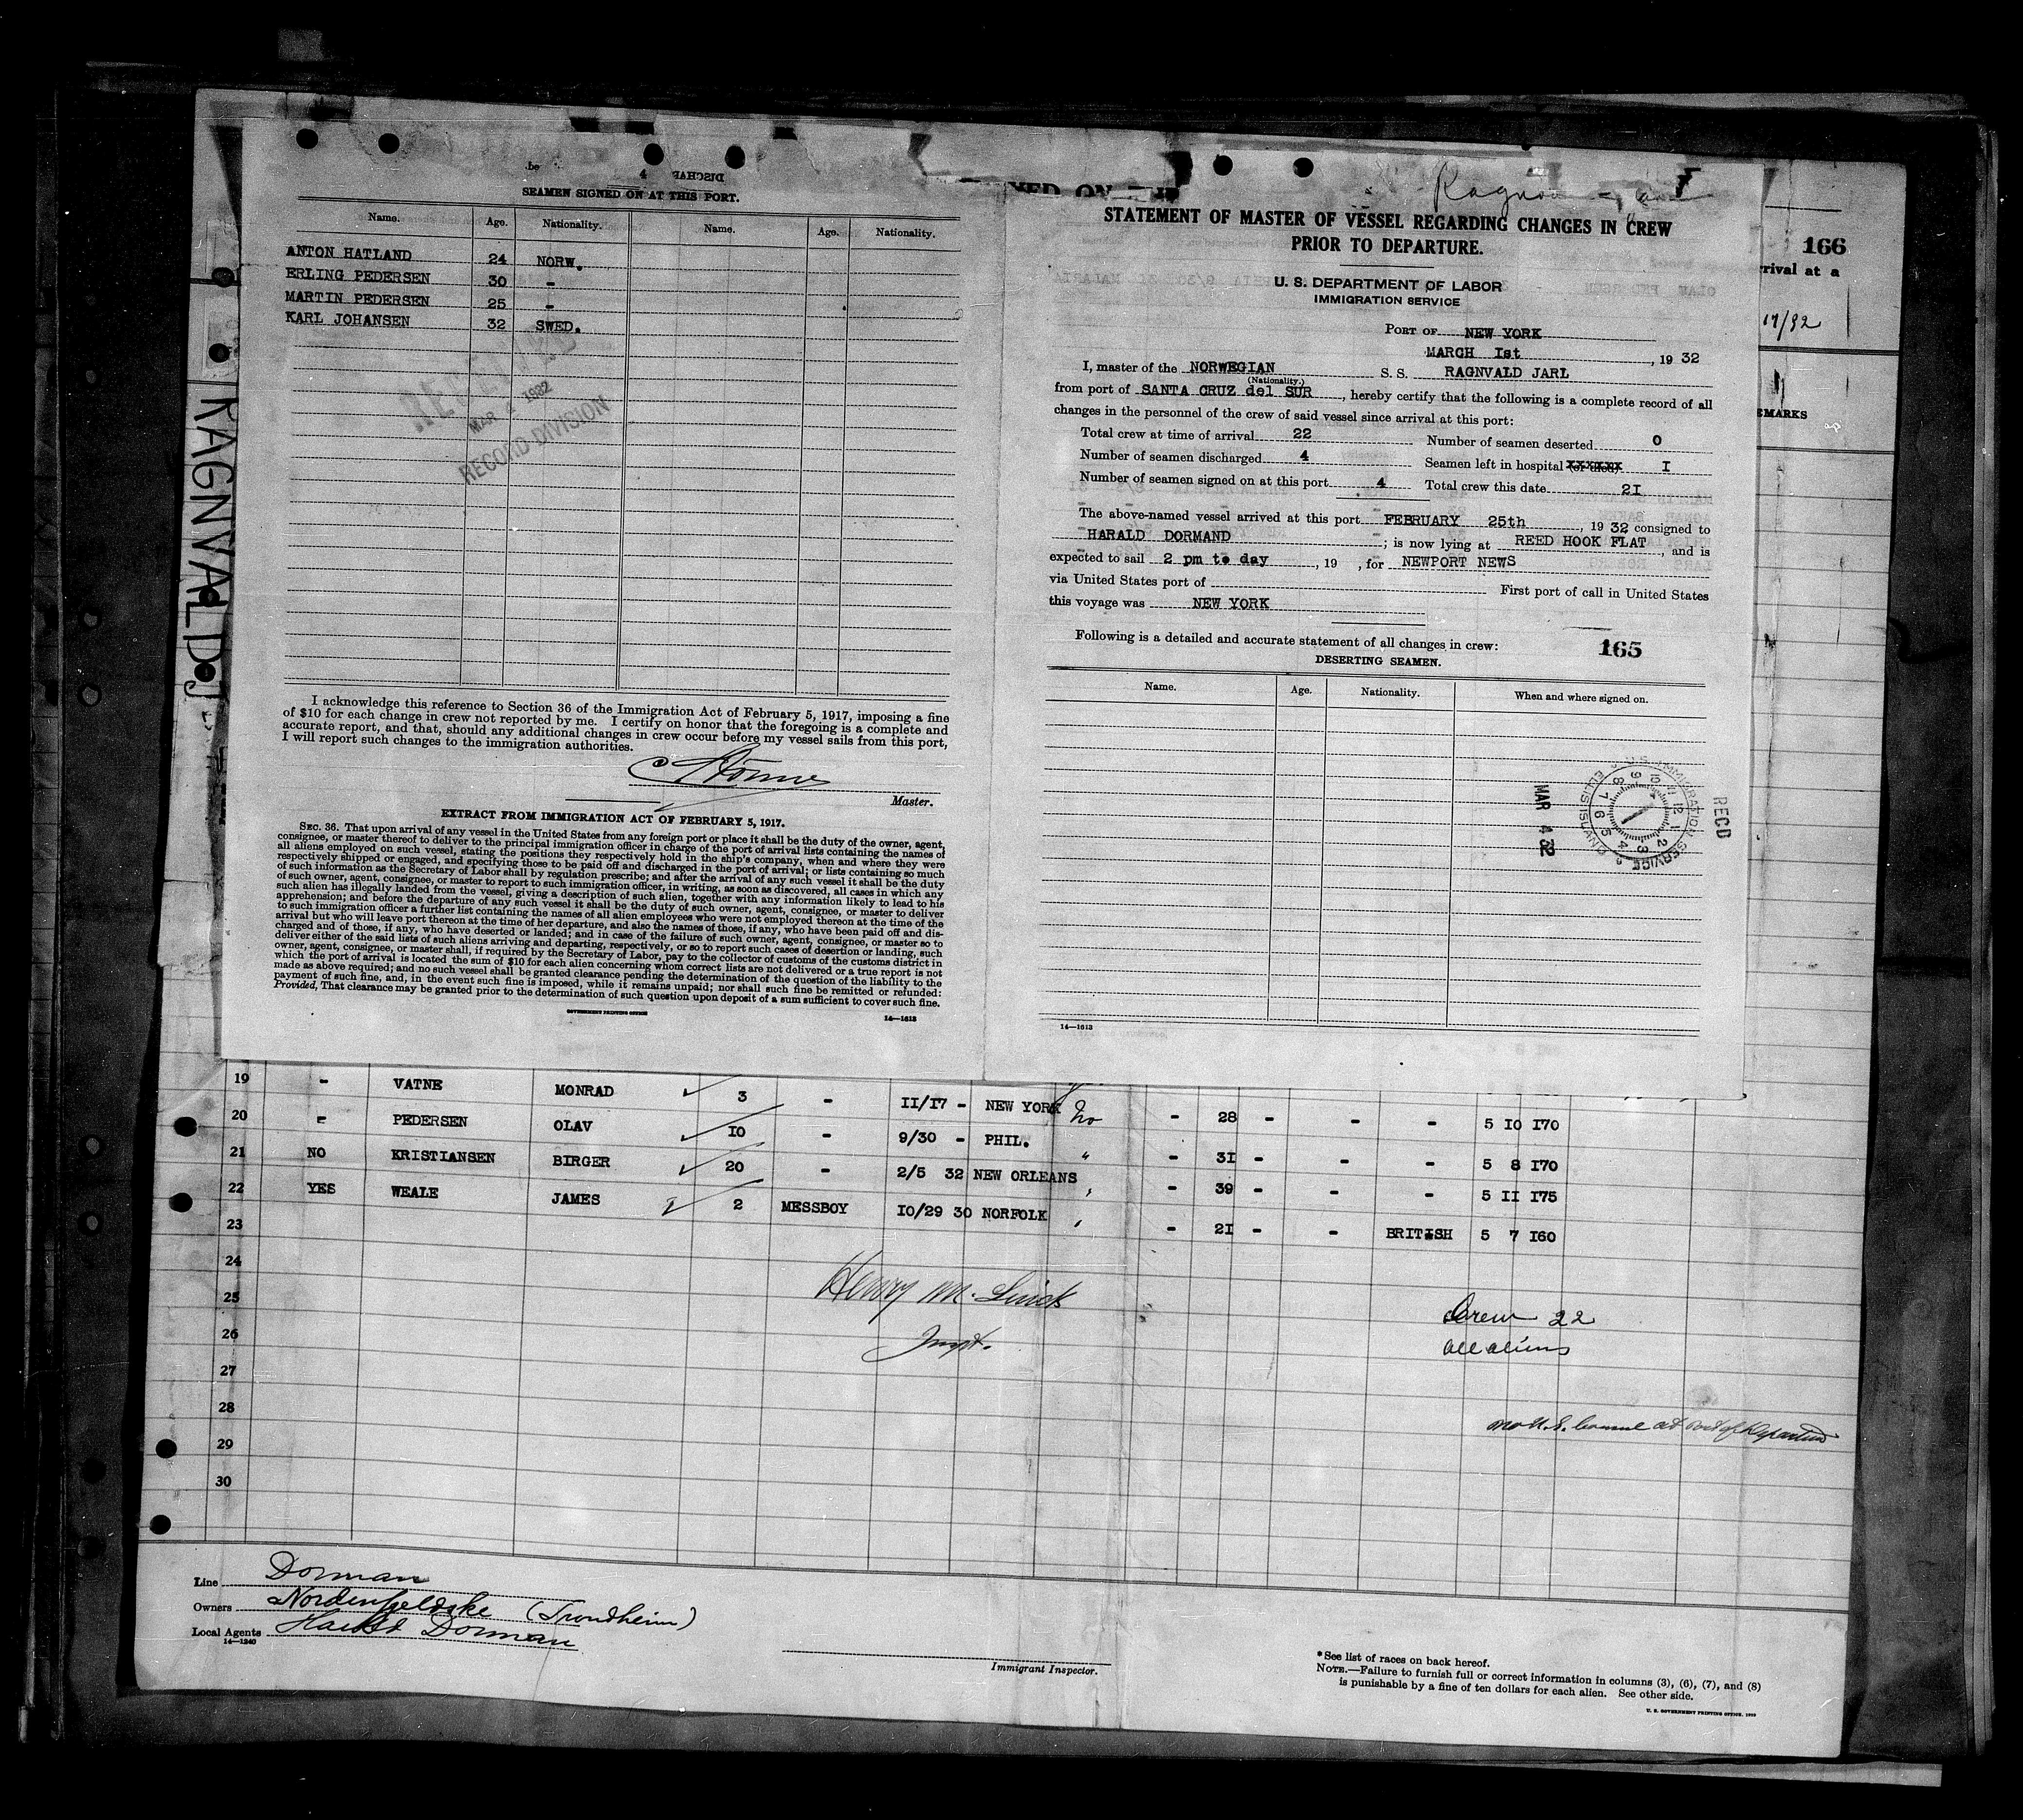 DISCHAR 4
SEAMEN SIGNED ON AT THIS PORT.
Name. Age. Nationality. Name. Age. Nationality.
ANTON HATLAND 24 NORW.
ERLING PEDERSEN 30 -
MARTIN PEDERSEN 25 -
KARL JOHANSEN 32 SWED.
RECEIVED
MAR 1932
RECORD DIVISION
I acknowledge this reference to Section 36 of the Immigration Act of February 5, 1917, imposing a fine
of $10 for each change in crew not reported by me. I certify on honor that the foregoing is a complete and
accurate report, and that, should any additional changes in crew occur before my vessel sails from this port,
I will report such changes to the immigration authorities.
Master.
EXTRACT FROM IMMIGRATION ACT OF FEBRUARY 5, 1917.
SEC. 36. That upon arrival of any vessel in the United States from any foreign port or place it shall be the duty of the owner, agent,
consignee, or master thereof to deliver to the principal immigration officer in charge of the port of arrival lists containing the names of
all aliens employed on such vessel, stating the positions they respectively hold in the ship's company, when and where they were
respectively shipped or engaged, and specifying those to be paid off and discharged in the port of arrival; or lists containing so much
of such information as the Secretary of Labor shall by regulation prescribe; and after the arrival of any such vessel it shall be the duty
of such owner, agent, consignee, or master to report to such immigration officer, in writing, as soon as discovered, all cases in which any
such alien has illegally landed from the vessel, giving a description of such alien, together with any information likely to lead to his
apprehension; and before the departure of any such vessel it shall be the duty of such owner, agent, consignee, or master to deliver
to such immigration officer a further list containing the names of all alien employees who were not employed thereon at the time of the
arrival but who will leave port thereon at the time of her departure, and also the names of those, if any, who have been paid off and dis-
charged and of those, if any, who have deserted or landed; and in case of the failure of such owner, agent, consignee, or master so to
deliver either of the said lists of such aliens arriving and departing, respectively, or so to report such cases of desertion or landing, such
owner, agent, consignee, or master shall, if required by the Secretary of Labor, pay to the collector of customs of the customs district in
which the port of arrival is located the sum of $10 for each alien concerning whom correct lists are not delivered or a true report is not
made as above required; and no such vessel shall be granted clearance pending the determination of the question of the liability to the
payment of such fine, and, in the event such fine is imposed, while it remains unpaid; nor shall such fine be remitted or refunded:
Provided, That clearance may be granted prior to the determination of such question upon deposit of a sum sufficient to cover such fine.
GOVERNMENT PRINTING OFFICE 14—1613
RAGNVALD J
STATEMENT OF MASTER OF VESSEL REGARDING CHANGES IN CREW
PRIOR TO DEPARTURE.
U. S. DEPARTMENT OF LABOR
IMMIGRATION SERVICE
PORT OF NEW YORK
MARCH Ist, 1932
I, master of the NORWEGIAN S. S. RAGNVALD JARL
(Nationality.)
from port of SANTA CRUZ del SUR, hereby certify that the following is a complete record of all
changes in the personnel of the crew of said vessel since arrival at this port:
Total crew at time of arrival 22 Number of seamen deserted 0
Number of seamen discharged 4 Seamen left in hospital (or died) I
Number of seamen signed on at this port 4 Total crew this date 2I
The above-named vessel arrived at this port FEBRUARY 25th, 1932 consigned to
HARALD DORMAND; is now lying at REED HOOK FLAT, and is
expected to sail 2 pm to day, 19 , for NEWPORT NEWS
via United States port of First port of call in United States
this voyage was NEW YORK
Following is a detailed and accurate statement of all changes in crew: 165
DESERTING SEAMEN.
Name. Age. Nationality. When and where signed on.
RECD
U.S. IMMIGRATION SERVICE ELLIS ISLAND
MAR 4 32
14—1613
166
rrival at a
17/32
EMARKS
19 - VATNE MONRAD 3 - II/I7 - NEW YORK No - 28 - - - 5 I0 I70
20 - PEDERSEN OLAV I0 - 9/30 - PHIL. " - 3I - - - 5 8 I70
21 NO KRISTIANSEN BIRGER 20 - 2/5 32 NEW ORLEANS - 39 - - - 5 II I75
22 YES WEALE JAMES 2 MESSBOY I0/29 30 NORFOLK - 2I - - BRITISH 5 7 I60
23
24
25
26
27
28
29
30
Henry M.
Inspt.
Crew 22
all aliens
No U.S. Consul at Port of Departure
Line Dorman
Owners Nordenfjeldske (Trondheim)
Local Agents Harald Dorman
14—1240
Immigrant Inspector.
*See list of races on back hereof.
NOTE.—Failure to furnish full or correct information in columns (3), (6), (7), and (8)
is punishable by a fine of ten dollars for each alien. See other side.
U. S. GOVERNMENT PRINTING OFFICE: 1929